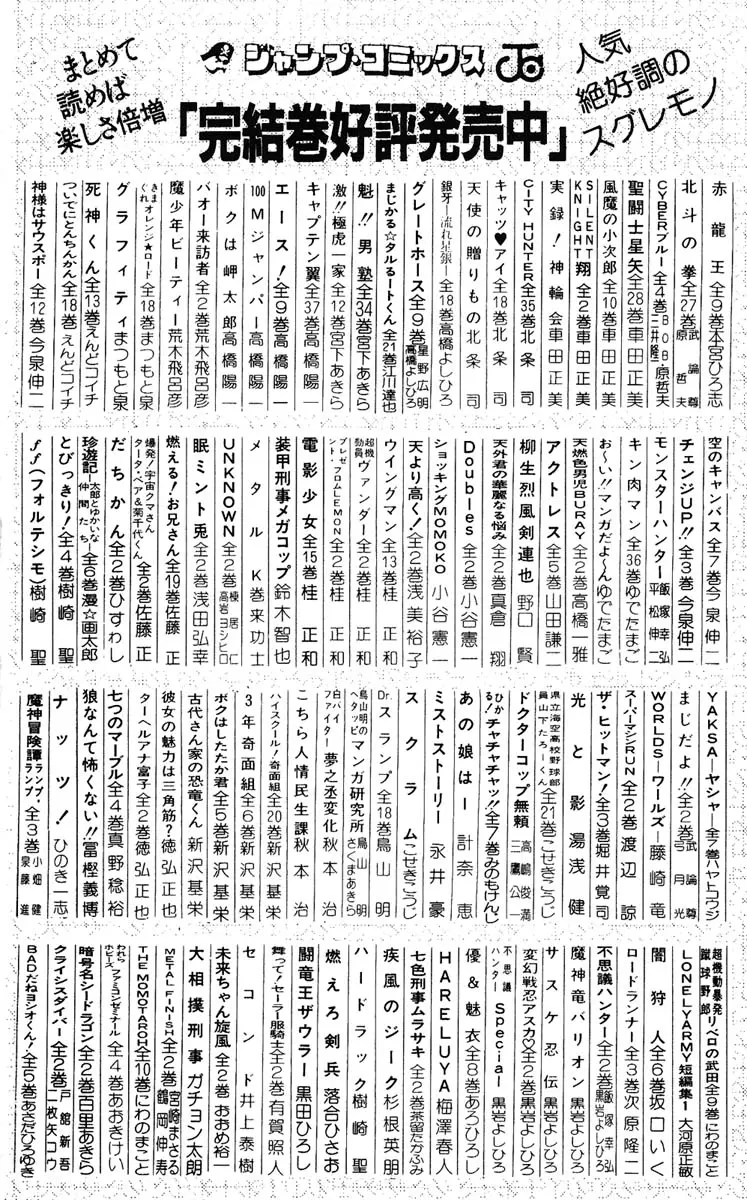 まとめて
読めば
楽しさ倍増
ジャンプ・コミックス
人気
絶好調の
スグレモノ
「完結巻好評発売中」
赤龍王 全9巻 本宮ひろ志
北斗の拳 全27巻 武論尊 原哲夫
CYBERブルー 全4巻 BOB 三井隆一 原哲夫
聖闘士星矢 全28巻 車田正美
風魔の小次郎 全10巻 車田正美
SILENT KNIGHT翔 全2巻 車田正美
実録!神輪会 車田正美
CITY HUNTER 全35巻 北条司
キャッツ♥アイ 全18巻 北条司
天使の贈りもの 北条司
銀牙―流れ星 銀― 全18巻 高橋よしひろ
グレートホース 全9巻 星野広明 高橋よしひろ
まじかる☆タルるートくん 全21巻 江川達也
魁!!男塾 全34巻 宮下あきら
激!!極虎一家 全12巻 宮下あきら
キャプテン翼 全37巻 高橋陽一
エース! 全9巻 高橋陽一
100Mジャンパー 高橋陽一
ボクは岬太郎 高橋陽一
バオー来訪者 全2巻 荒木飛呂彦
魔少年ビーティー 荒木飛呂彦
きまぐれオレンジ★ロード 全18巻 まつもと泉
グラフィティ まつもと泉
死神くん 全13巻 えんどコイチ
ついでにとんちんかん 全18巻 えんどコイチ
神様はサウスポー 全12巻 今泉伸二
空のキャンバス 全7巻 今泉伸二
チェンジUP!! 全3巻 今泉伸二
モンスターハンター 飯塚幸弘 平松伸二
キン肉マン 全36巻 ゆでたまご
お〜い!!マンガだよ〜ん ゆでたまご
天燃色男児BURAY 全2巻 高橋一雅
アクトレス 全5巻 山田謙二
柳生烈風剣連也 野口賢
天外君の華麗なる悩み 全2巻 真倉翔
Doubles 全2巻 小谷憲一
ショッキングMOMOKO 小谷憲一
天より高く! 全2巻 浅美裕子
ウイングマン 全13巻 桂正和
超機動員ヴァンダー 全2巻 桂正和
プレゼント・フロムLEMON 全2巻 桂正和
電影少女 全15巻 桂正和
装甲刑事メガコップ 鈴木智也
メタルK 巻来功士
UNKNOWN 全2巻 棟居仁 高岩ヨシヒロ
眠兎 全2巻 浅田弘幸
燃える!お兄さん 全19巻 佐藤正
爆発!宇宙クマさん タータ・ベア&菊千代くん 全2巻 佐藤正
だちかん 全2巻 ひすわし
珍遊記―太郎とゆかいな仲間たち― 全6巻 漫☆画太郎
とびっきり! 全4巻 樹崎聖
ff(フォルテシモ) 樹崎聖
YAKSA―ヤシャー 全7巻 ハヤトコウジ
まじだよ!! 全2巻 武論尊 弓月光
WORLDS―ワールズ― 藤崎竜
スーパーマシンRUN 全2巻 渡辺諒
ザ・ヒットマン! 全3巻 堀井覚司
光と影 湯浅健
県立海空高校野球部員山下たろーくん 全21巻 こせきこうじ
ドクターコップ無頼 高嶋俊満 三鷹公一
ひかる!チャチャチャッ!! 全7巻 みのもけんじ
あの娘はー 計奈恵
ミストストーリー 永井豪
スクラム こせきこうじ
Dr.スランプ 全18巻 鳥山明
鳥山明のヘタッピマンガ研究所 鳥山明 さくまあきら
白バイファイター夢之丞変化 秋本治
こちら人情民生課 秋本治
ハイスクール!奇面組 全20巻 新沢基栄
3年奇面組 全6巻 新沢基栄
ボクはしたたか君 全5巻 新沢基栄
古代さん家の恐竜くん 新沢基栄
彼女の魅力は三角筋? 徳弘正也
ターヘルアナ富子 全2巻 徳弘正也
七つのマーブル 全4巻 真野稔裕
狼なんて怖くない!! 冨樫義博
ナッツ! ひのき一志
魔神冒険譚ランプ・ランプ 全3巻 小畑健 泉藤進
超機動暴発蹴球野郎リベロの武田 全9巻 にわのまこと
LONELY ARMY 短編集1 大河原正敏
闇狩人 全6巻 坂口いく
ロードランナー 全3巻 次原隆二
不思議ハンター 全2巻 飯塚幸弘 黒岩よしひろ
魔神竜バリオン 黒岩よしひろ
サスケ忍伝 黒岩よしひろ
変幻戦忍アスカ♡ 全2巻 黒岩よしひろ
不思議ハンターSpecial 黒岩よしひろ
優&魅衣 全8巻 あろひろし
HARELUYA 梅澤春人
七色刑事ムラサキ 全2巻 茶留たかふみ
疾風のジーク 杉根英明
ハードラック 樹崎聖
燃えろ剣兵 落合ひさお
闘竜王ザウラー 黒田ひろし
舞って!セーラー服騎士 全2巻 有賀照人
セコンド 井上泰樹
未来ちゃん旋風 全2巻 おおめ裕一
大相撲刑事 ガチョン太朗
METAL FINISH 全2巻 宮崎まさる 鶴岡伸寿
THE MOMOTAROH 全10巻 にわのまこと
われらホビーズ ファミコンゼミナール 全4巻 あおきけい
暗号名シードラゴン 全2巻 百里あきら
クライシスダイバー 全2巻 戸舘新吾 二枚矢コウ
BADだねヨシオくん! 全5巻 あさだひろゆき